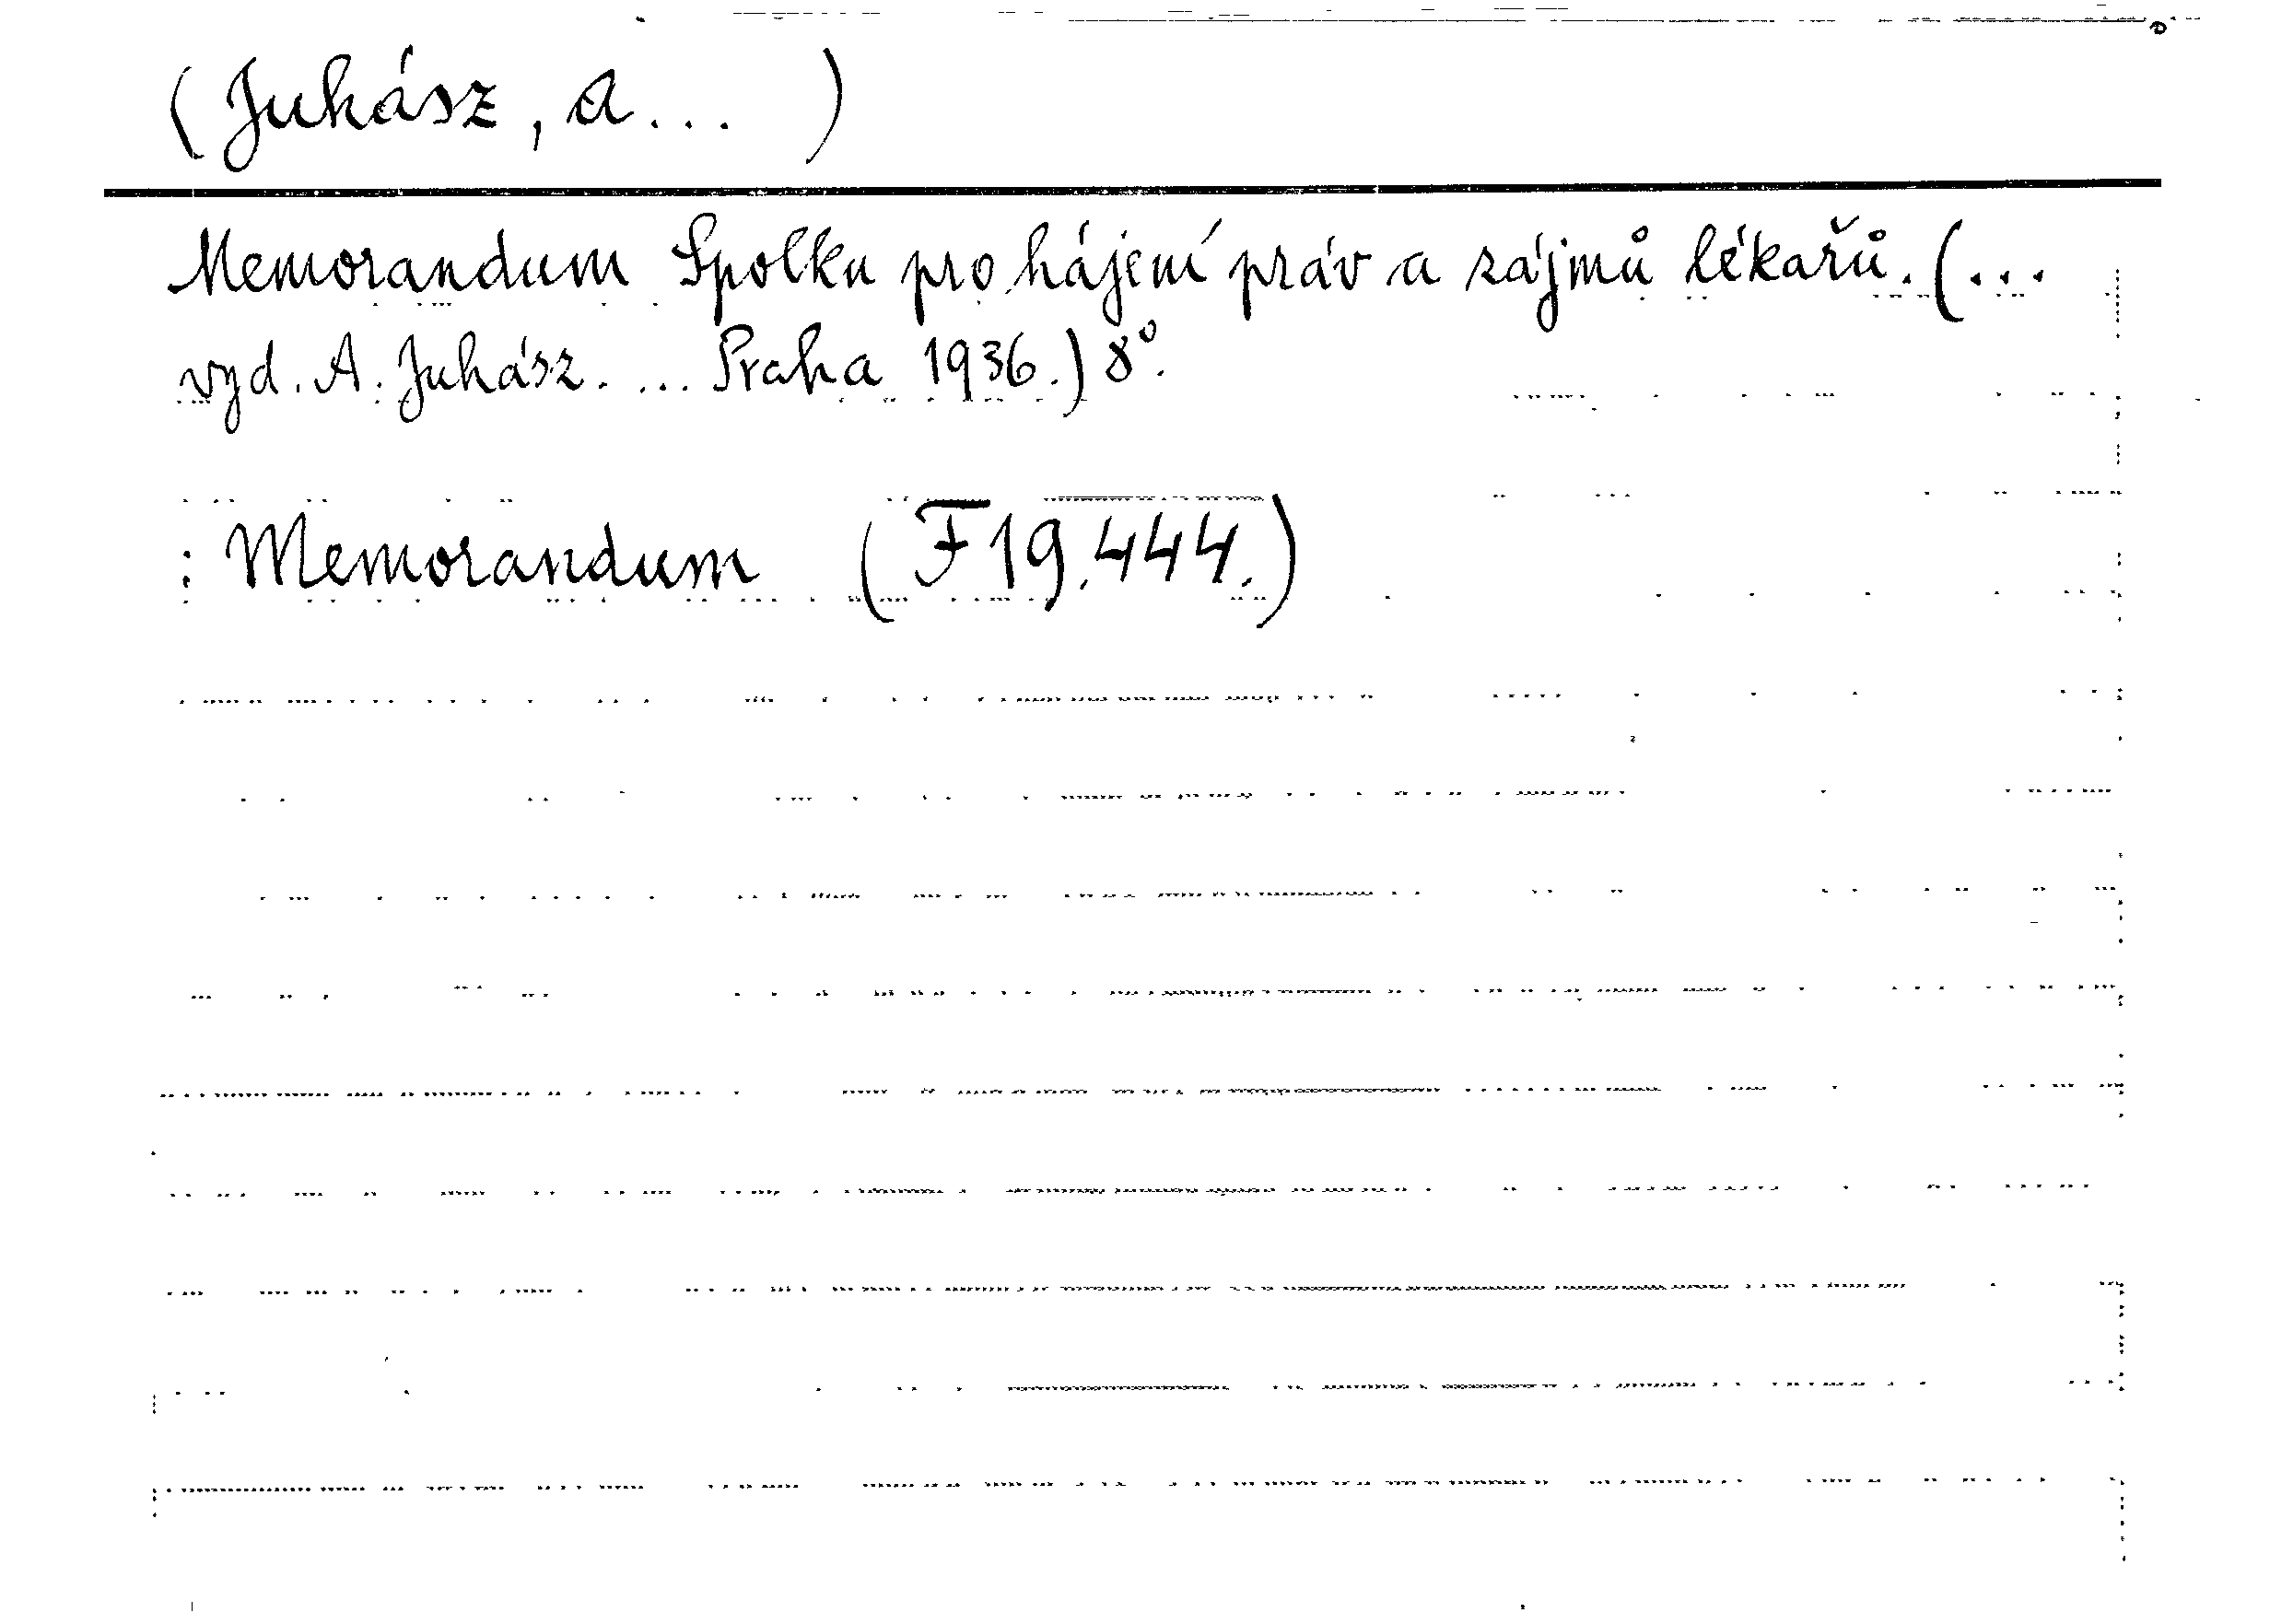 (Juhász, A... )
Memorandum Spolku pro hájení práv a zájmů lékařů. (...
vyd. A. Juhász. ... Praha 1936.) 8°.
: Memorandum (F 19.444.)